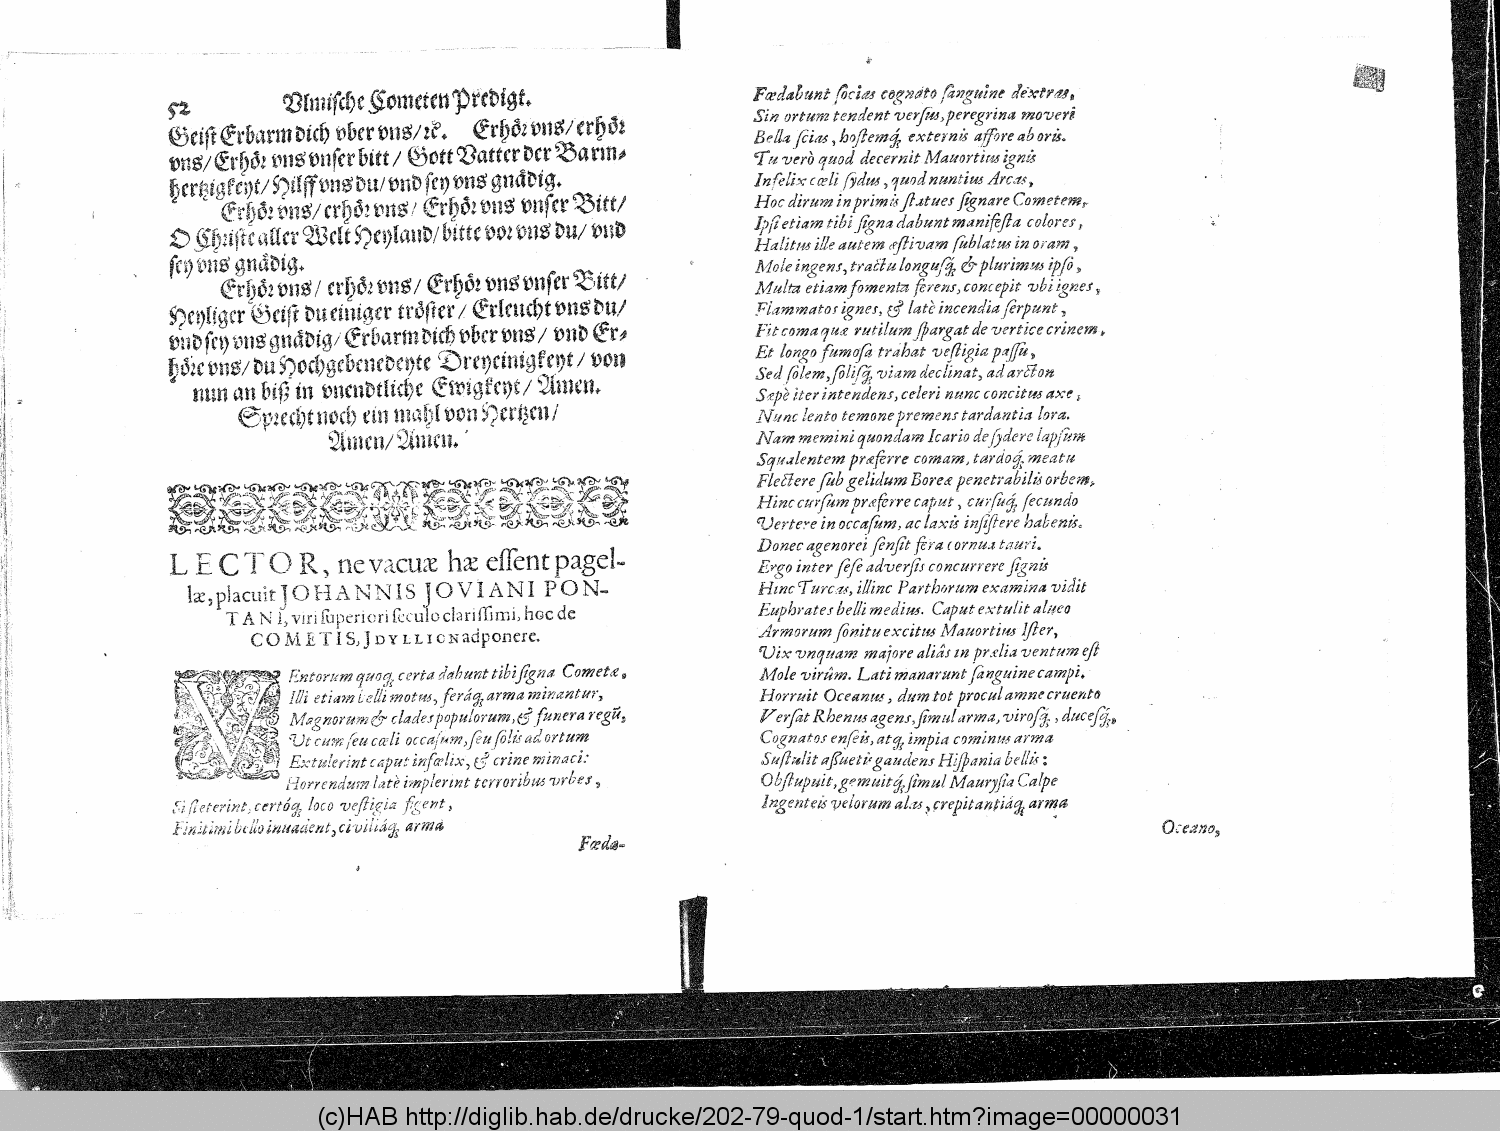 52 Vlmische Cometen Predigt.
Geist Erbarm dich vber vns/ ꝛc. Erhoͤr vns/ erhoͤr
vns/ Erhoͤr vns vnser bitt/ Gott Vatter der Barm-
hertzigkeyt/ Hilff vns du/ vnd sey vns gnaͤdig.
Erhoͤr vns/ erhoͤr vns/ Erhoͤr vns vnser Bitt/
O Christe aller Welt Heyland/ bitte vor vns du/ vnd
sey vns gnaͤdig.
Erhoͤr vns/ erhoͤr vns/ Erhoͤr vns vnser Bitt/
Heyliger Geist du einiger troͤster/ Erleucht vns du/
vnd sey vns gnaͤdig/ Erbarm dich vber vns/ vnd Er-
hoͤre vns/ du Hochgebenedeyte Dreyeinigkeyt/ von
nun an biß in vnendtliche Ewigkeyt/ Amen.
Sprecht noch ein mahl von Hertzen/
Amen/ Amen.
LECTOR, ne vacuæ hæ essent pagel-
læ, placuit JOHANNIS JOVIANI PON-
TANI, viri superiori seculo clarissimi, hoc de
COMETIS, JDYLLION adponere.
VEntorum quoq; certa dabunt tibi signa Cometæ,
Illi etiam belli motus, feráq; arma minantur,
Magnorum & clades populorum, & funera regũ,
Ut cum seu cœli occasum, seu solis ad ortum
Extulerint caput infœlix, & crine minaci:
Horrendum latè implerint terroribus vrbes,
Si steterint, certóq; loco vestigia figent,
Finitimi bello inuadent, civiliáq; arma
Fœda-
Fœdabunt socias cognáto sanguine dextras,
Sin ortum tendent versus, peregrina moveri
Bella scias, hostemq́; externis affore ab oris.
Tu verò quod decernit Mauortius ignis
Infelix cœli sydus, quod nuntius Arcas,
Hoc dirum in primis statues signare Cometem,
Ipsi etiam tibi signa dabunt manifesta colores,
Halitus ille autem æstivam sublatus in oram,
Mole ingens, tractu longusq́; & plurimus ipso,
Multa etiam fomenta ferens, concepit vbi ignes,
Flammatos ignes, & latè incendia serpunt,
Fit coma quæ rutilum spargat de vertice crinem,
Et longo fumosa trahat vestigia passu,
Sed solem, solisq́; viam declinat, ad arcton
Sæpè iter intendens, celeri nunc concitus axe,
Nunc lento temone premens tardantia lora.
Nam memini quondam Icario de sydere lapsum
Squalentem præferre comam, tardoq́; meatu
Flectere sub gelidum Boreæ penetrabilis orbem,
Hinc cursum præferre caput, cursuq́; secundo
Vertere in occasum, ac laxis insistere habenis.
Donec agenorei sensit fera cornua tauri.
Ergo inter sese adversis concurrere signis
Hinc Turcas, illinc Parthorum examina vidit
Euphrates belli medius. Caput extulit alueo
Armorum sonitu excitus Mauortius Ister,
Vix vnquam majore aliâs in prælia ventum est
Mole virûm. Lati manarunt sanguine campi.
Horruit Oceanus, dum tot procul amne cruento
Versat Rhenus agens, simul arma, virosq́;, ducesq́;,
Cognatos enseis, atq; impia cominus arma
Sustulit assuetis gaudens Hispania bellis:
Obstupuit, gemuitq́; simul Maurysia Calpe
Ingenteis velorum alas, crepitantiáq; arma
Oceano,
(c)HAB http://diglib.hab.de/drucke/202-79-quod-1/start.htm?image=00000031